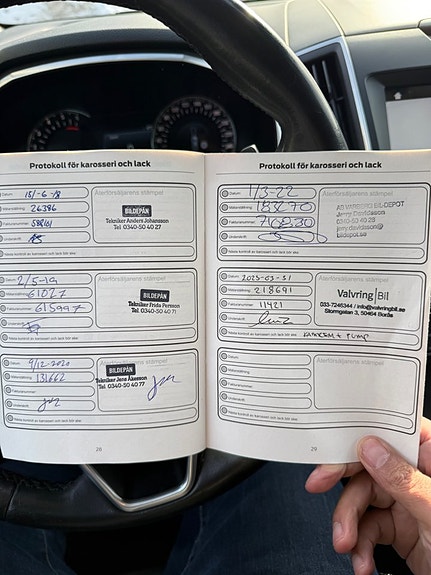 Protokoll för karosseri och lack
Datum: 15/-6-18
Mätarställning: 26386
Fakturanummer:
Underskrift:
Nästa kontroll av karosseri och lack bör ske:
Återförsäljarens stämpel
BILDEPÅN
Tekniker Anders Johansson
Tel 0340-50 40 27
Datum: 2/5-19
Mätarställning: 61027
Fakturanummer: 615997
Underskrift:
Nästa kontroll av karosseri och lack bör ske:
Återförsäljarens stämpel
BILDEPÅN
Tekniker Frida Persson
Tel. 0340-50 40 71
Datum: 9/12-2020
Mätarställning: 131662
Fakturanummer:
Underskrift:
Nästa kontroll av karosseri och lack bör ske:
Återförsäljarens stämpel
BILDEPÅN
Tekniker Jens Åkesson
Tel. 0340-50 40 77
28
Protokoll för karosseri och lack
Datum: 1/3-22
Mätarställning:
Fakturanummer:
Underskrift:
Nästa kontroll av karosseri och lack bör ske:
Återförsäljarens stämpel
AB VARBERG BIL-DEPOT
Jerry Davidsson
0340-50 40 28
jerry.davidsson@
bildepot.se
Datum: 2025-03-31
Mätarställning: 218691
Fakturanummer: 11421
Underskrift:
Nästa kontroll av karosseri och lack bör ske: HALDEX + PUMP
Återförsäljarens stämpel
Valvring Bil
033-7246344 / info@valvringbil.se
Stormgatan 3, 50464 Borås
Datum:
Mätarställning:
Fakturanummer:
Underskrift:
Nästa kontroll av karosseri och lack bör ske:
Återförsäljarens stämpel
29